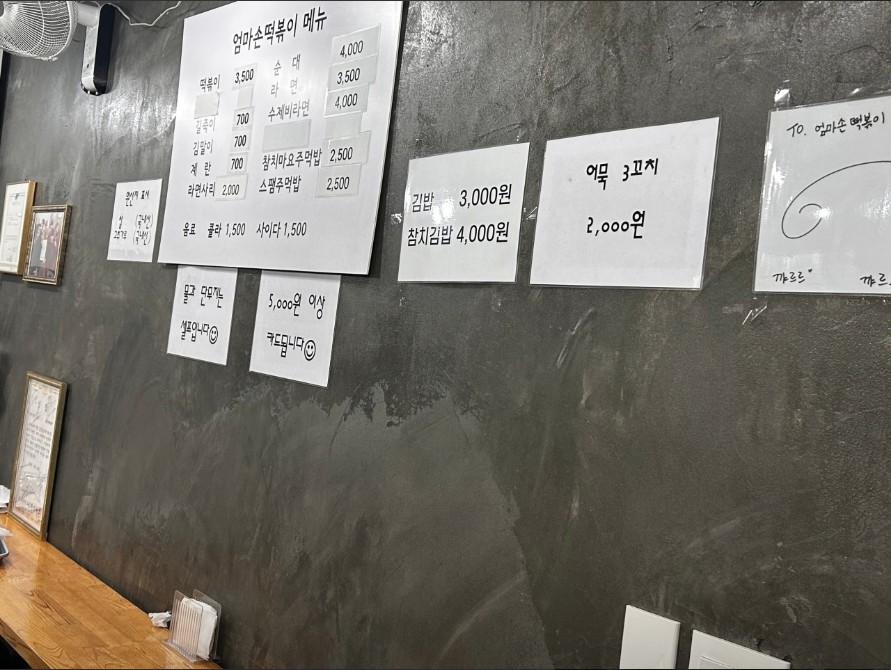 엄마손떡볶이 메뉴
떡볶이 3,500 순 대 4,000
라 면 3,500
길쭉이 700 수제비라면 4,000
김말이 700
계 란 700 참치마요주먹밥 2,500
라면사리 2,000 스팸주먹밥 2,500
음료 콜라 1,500 사이다 1,500
원산지 표시
쌀 (국내산)
고춧가루 (국내산)
물과 단무지는
셀프입니다
5,000원 이상
카드됩니다
김밥 3,000원
참치김밥 4,000원
어묵 3꼬치
2,000원
TO. 엄마손떡볶이
꺄르르